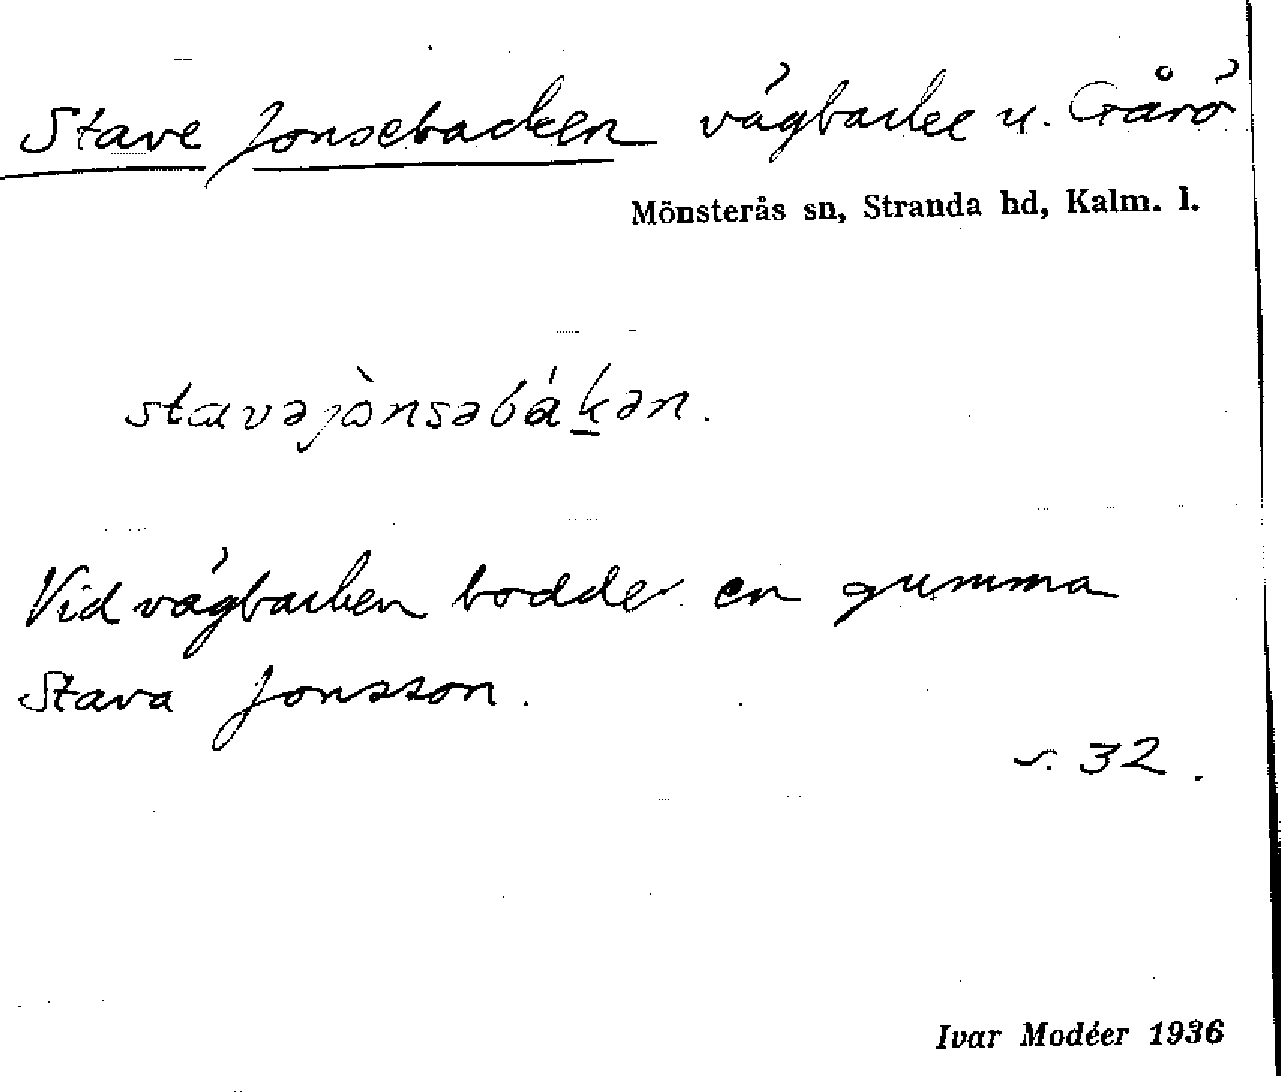 Stave Jonsebacken vägbacke u. Gårö
Mönsterås sn, Stranda hd, Kalm. l.
stavəjònsəbákən.
Vid vägbacken bodde en gumma
Stava Jonsson.
s. 32.
Ivar Modéer 1936